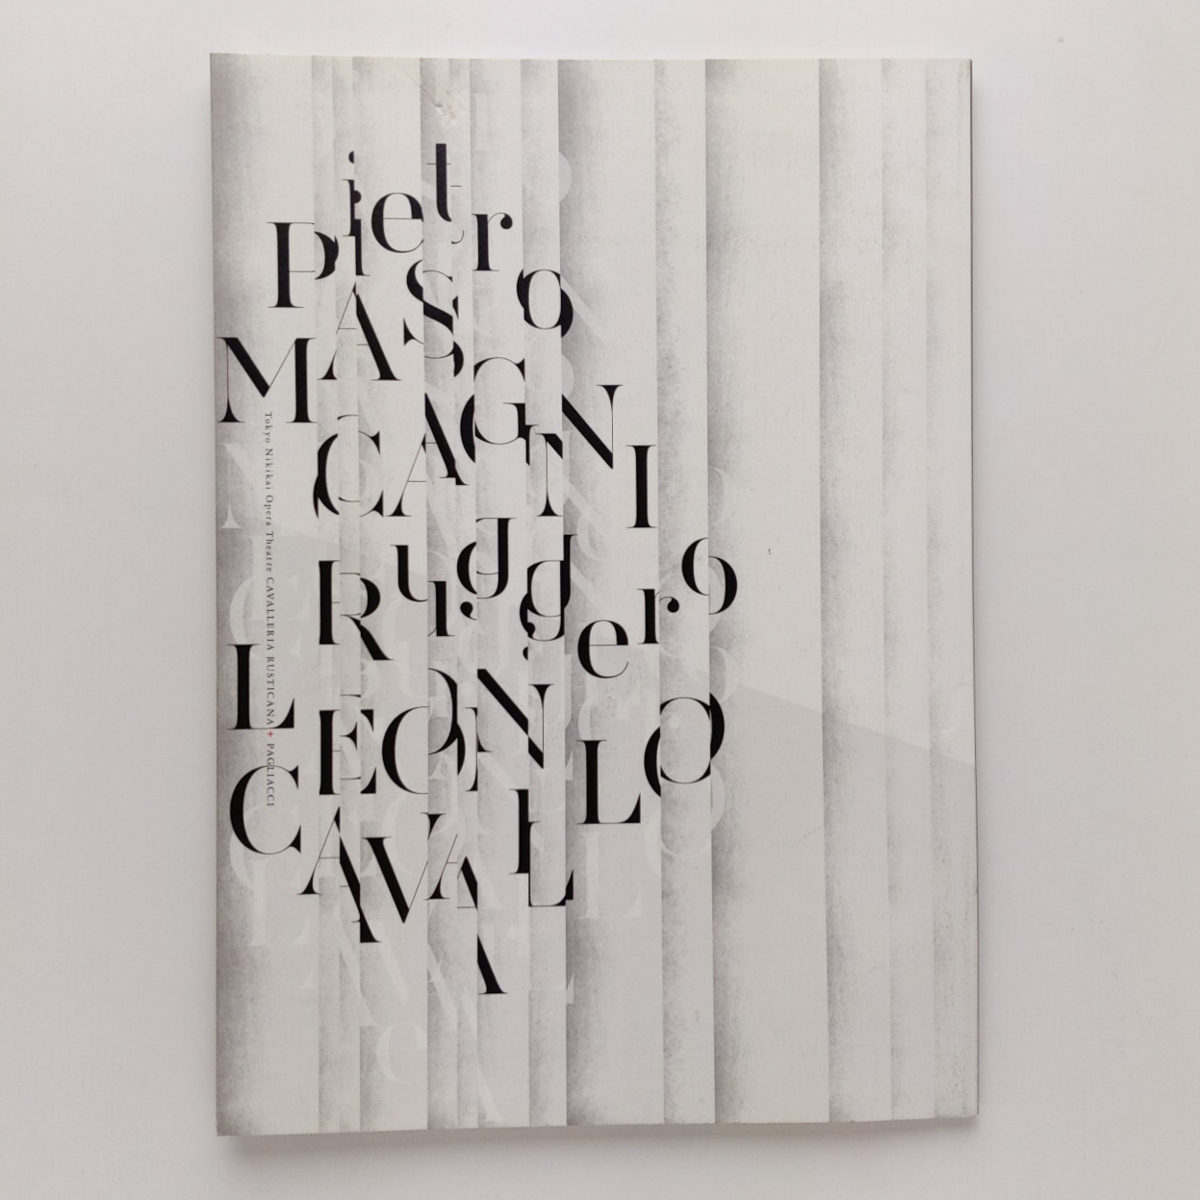 Pietro
MASCAGNI
Ruggero
LEONCAVALLO
Tokyo Nikikai Opera Theatre CAVALLERIA RUSTICANA + PAGLIACCI